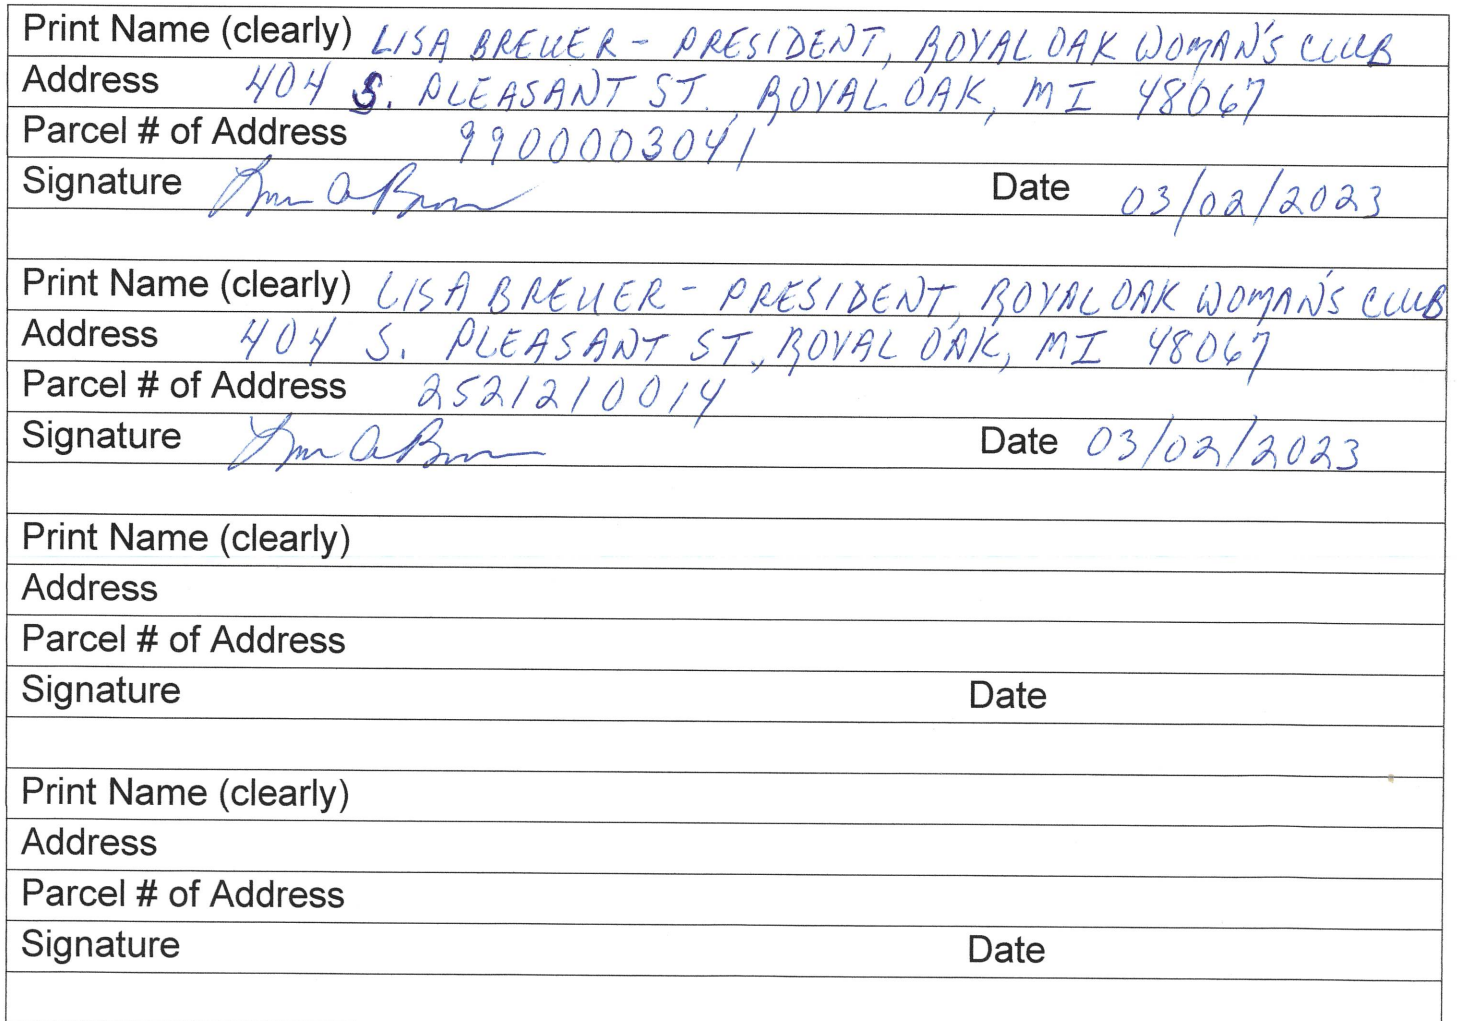 Print Name (clearly) LISA BREUER - PRESIDENT, ROYAL OAK WOMAN'S CLUB
Address 404 S. PLEASANT ST. ROYAL OAK, MI 48067
Parcel # of Address 9900003041
Signature Date 03/02/2023
Print Name (clearly) LISA BREUER - PRESIDENT, ROYAL OAK WOMAN'S CLUB
Address 404 S. PLEASANT ST, ROYAL OAK, MI 48067
Parcel # of Address 2521210014
Signature Date 03/02/2023
Print Name (clearly)
Address
Parcel # of Address
Signature Date
Print Name (clearly)
Address
Parcel # of Address
Signature Date